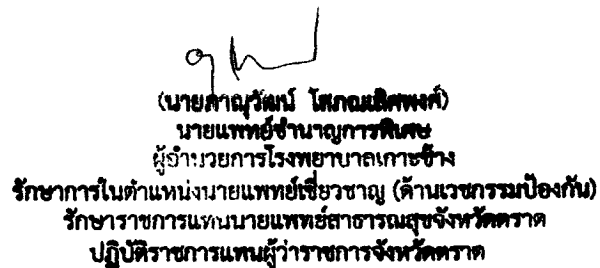 (นายภาณุวัฒน์ โสภณเลิศพงศ์)
นายแพทย์ชำนาญการพิเศษ
ผู้อำนวยการโรงพยาบาลเกาะช้าง
รักษาการในตำแหน่งนายแพทย์เชี่ยวชาญ (ด้านเวชกรรมป้องกัน)
รักษาราชการแทนนายแพทย์สาธารณสุขจังหวัดตราด
ปฏิบัติราชการแทนผู้ว่าราชการจังหวัดตราด